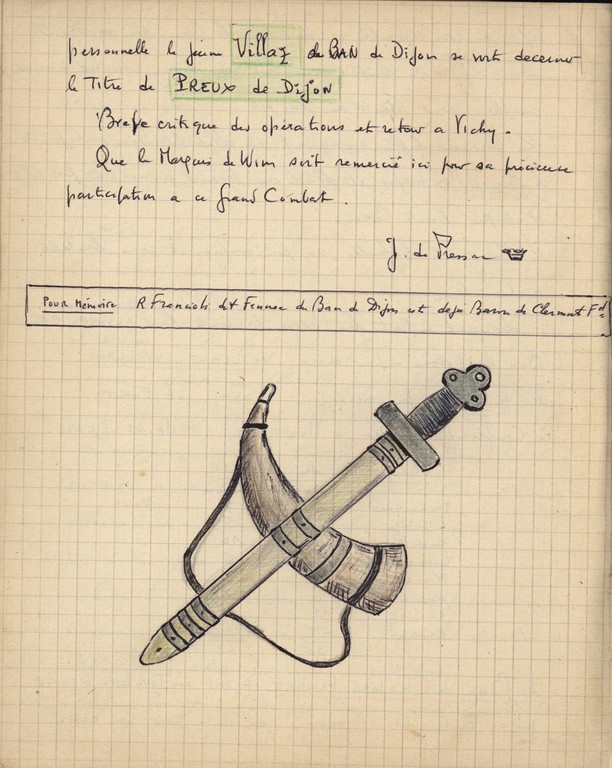 personnelle le jeune Villaz du BAN de Dijon se voit decerner
le Titre de PREUX de Dijon
Breve critique des operations et retour a Vichy.
Que le Marquis de Wim soit remercié ici pour sa précieuse
participation a ce Grand Combat.
J. de
Pour Mémoire R Francioli dit du Ban de Dijon est deja Baron de Clermont Fd